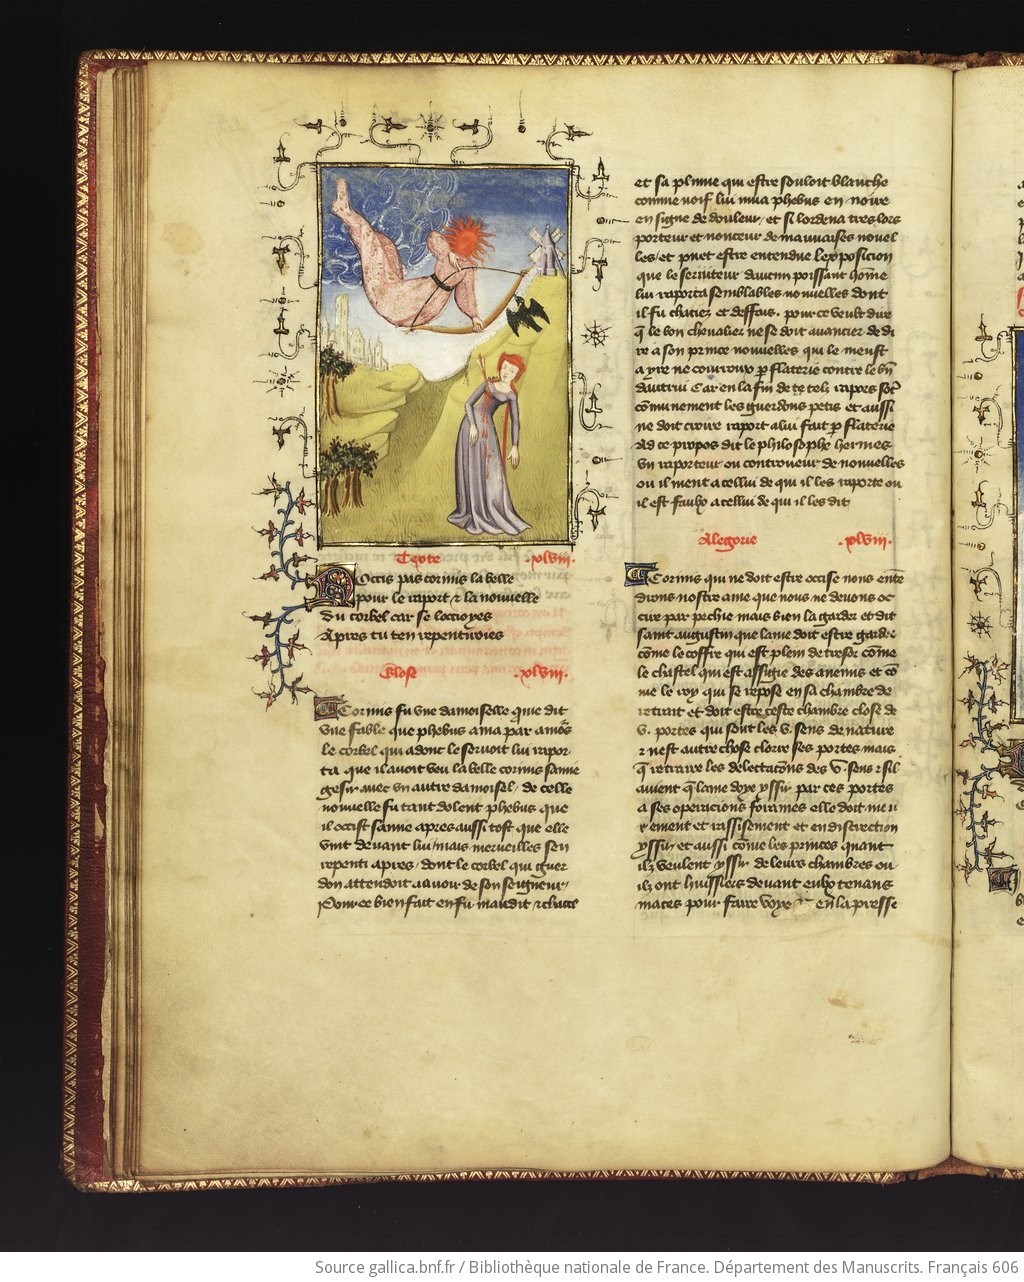 Texte .xlviii.
Noccis pas corinis la belle
pour le raport & la nouvelle
Du corbel car se loccioyes
Apres tu ten repentiroies
Glose .xlviii.
Corinis fu une damoiselle si que dit
une fable que phebus ama par amors
le corbel qui adonc le servoit lui rapor
ta que il avoit veu la belle corinis samie
gesir avec un autre damoisel / de celle
nouvelle fu tant dolent phebus que
il occist samie apres aussi tost que elle
vint devant lui mais merveilles sen
repenti apres / dont le corbel qui guer
don attendoit a avoir de son seigneur
Pour ce bienfait en fu maudit & chacie
et sa plume qui estre souloit blanche
comme noif lui mua phebus en noire
en signe de douleur / et si lordena tres lors
porteur et nonceur de mauvaises nouvel
les / et puet estre entendue lexposicion
que le serviteur daucun poissant home
lui raporta semblables nouvelles dont
il fu chaciez et deffais . pour ce veult dire
q le bon chevalier ne se doit avancier de di
re a son prince nouvelles qui le meust
a yre ne courroux p flaterie contre le bn
dautrui Car en la fin de telz rapors sot
comunement les guerdons petis et aussi
ne doit croire raport a lui fait p flaterie
Ad ce propos dit le philosophe hermes
un raporteur ou controuveur de nouvelles
ou il ment a cellui de qui il les raporte ou
il est faulx a cellui de qui il les dit
Alegorie .xlviii.
Corinis qui ne doit estre occise nous ente
drons nostre ame que nous ne devons oc
cire par pechie mais bien la garder et dit
saint augustin que lame doit estre gardee
come le coffre qui est plein de tresor come
le chastel qui est assigie des anemis et co
me le roy qui se repose en sa chambre de
retrait et doit estre ceste chambre close de
v. portes qui sont les v. sens de nature
& nest autre chose clorre ses portes mais
q retraire les delectacons des v. sens & sil
avient q lame doye yssir par ces portes
a ses operacions foraines elle doit meu
rement et rassisement et en discrecion
yssir et aussi come les princes quant
ilz veulent yssir de leurs chambres ou
ilz ont huissiers devant eulx tenans
maces pour faire voye en la presse
Source gallica.bnf.fr / Bibliothèque nationale de France. Département des Manuscrits. Français 606